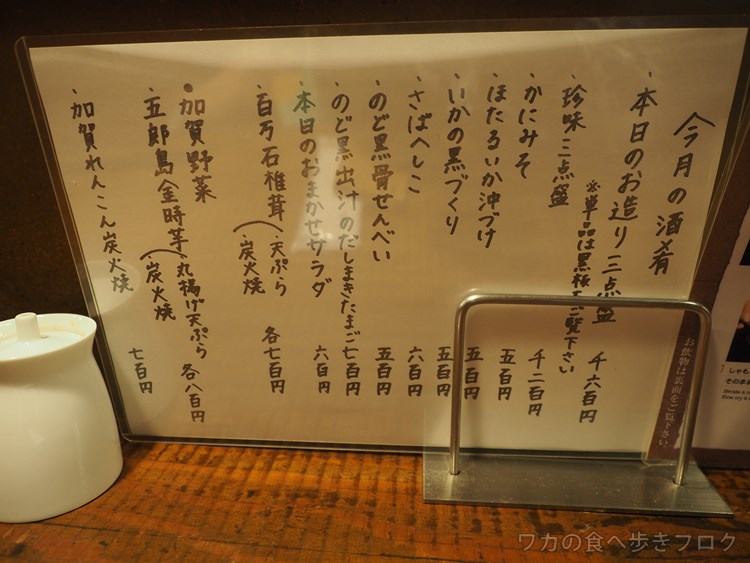 今月の酒肴
・本日のお造り三点盛 千六百円
※単品は黒板をご覧下さい
・珍味三点盛 千二百円
・かにみそ 五百円
・ほたるいか沖づけ 五百円
・いかの黒づくり 五百円
・さばへしこ 六百円
・のど黒骨せんべい 五百円
・のど黒出汁のだしまきたまご 七百円
・本日のおまかせサラダ 六百円
・百万石椎茸(・天ぷら
・炭火焼 各七百円
●加賀野菜
・五郎島金時芋(・丸揚げ天ぷら
・炭火焼 各八百円
・加賀れんこん炭火焼 七百円
お飲物は裏面をご覧下さい
しゃも
ワカの食べ歩きブログ